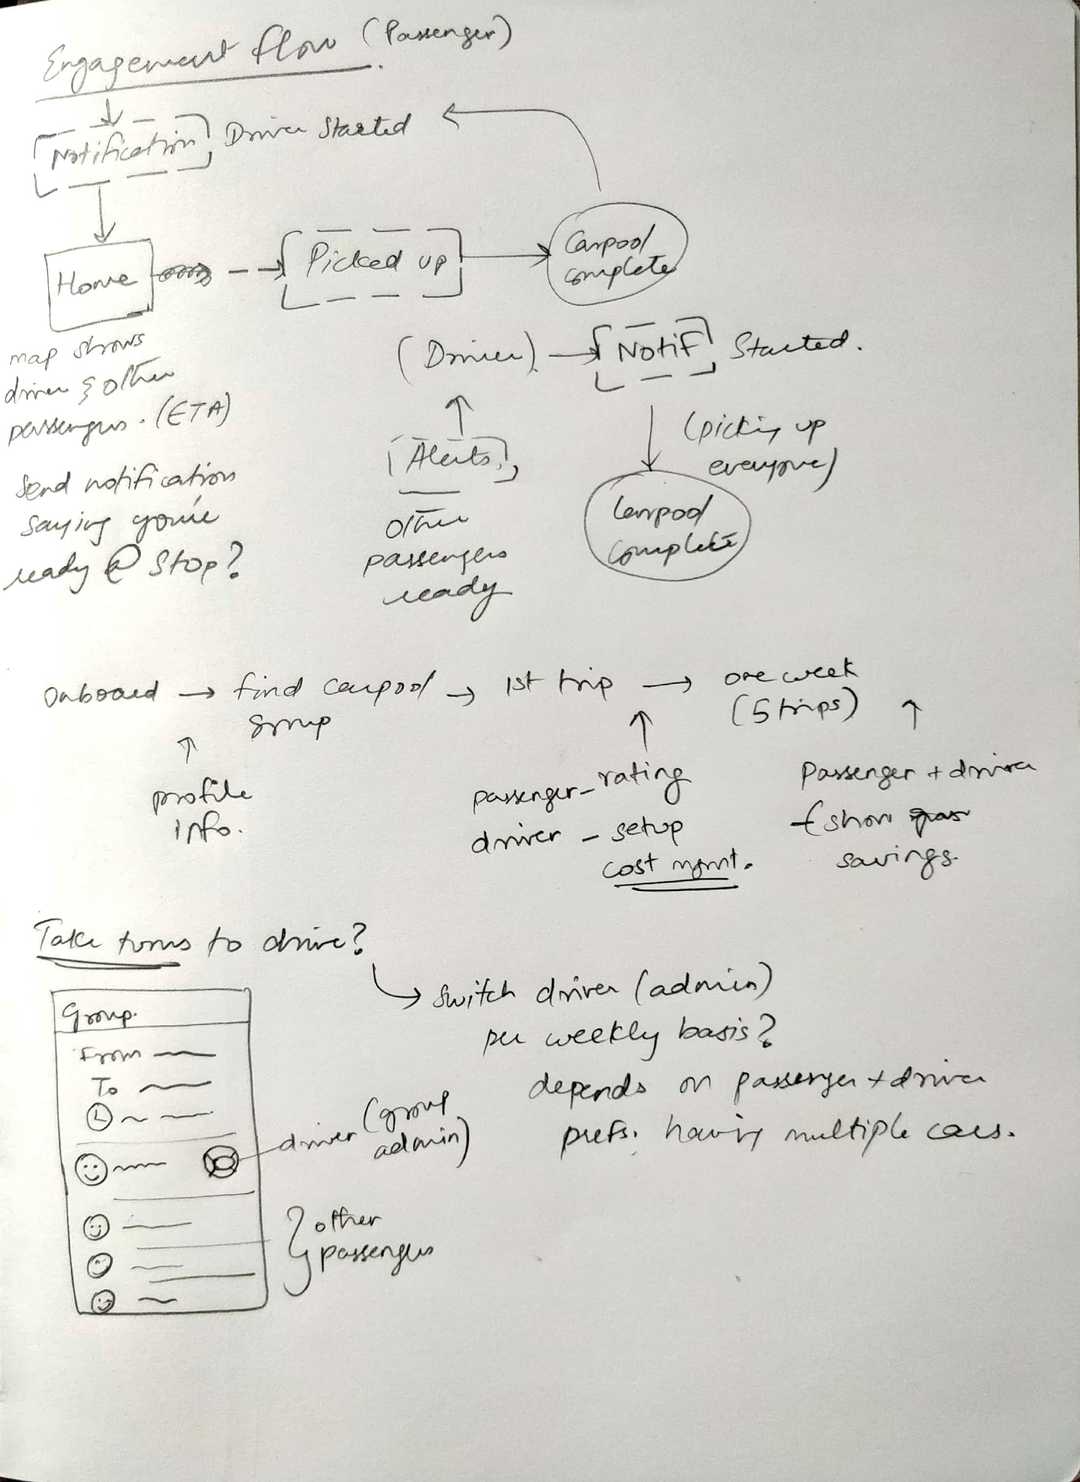 Engagement flow (Passenger)
Notification Driver Started
Home
Picked up
Carpool
complete
map shows
driver & other
passengers. (ETA)
Send notification
saying you're
ready @ Stop?
(Driver)
Notif
Started.
(picking up
everyone)
Carpool
complete
Alerts
other
passengers
ready
Onboard → find carpool → 1st trip → one week
group
(5 trips)
profile
info.
passenger - rating
driver - setup
cost mgmt.
Passenger + driver
show
savings.
Take turns to drive?
Switch driver (admin)
per weekly basis?
depends on passenger + driver
prefs. having multiple cars.
Group.
From
To
driver (group
admin)
other
passengers